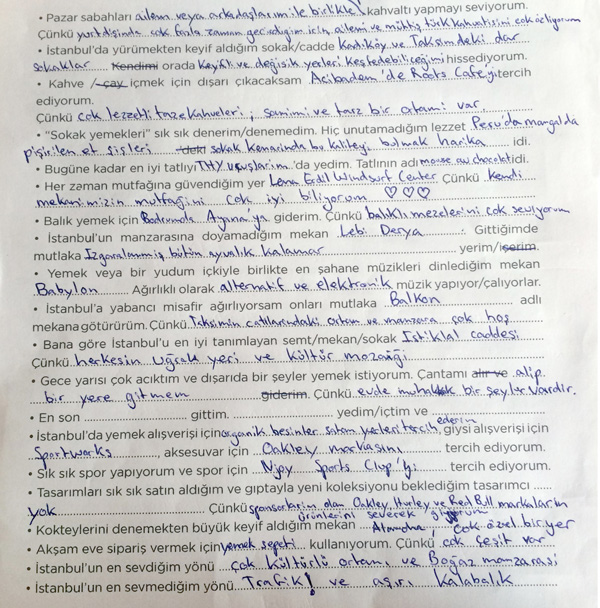 • Pazar sabahları ailem veya arkadaşlarım ile birlikte kahvaltı yapmayı seviyorum.
Çünkü yurtdışında çok fazla zaman geçirdiğim için ailemi ve müthiş türk kahvaltısını çok özlüyorum
• İstanbul'da yürümekten keyif aldığım sokak/cadde Kadıköy ve Taksimdeki dar
sokaklar Kendimi orada keyifli ve değişik yerleri keşfedebileceğimi hissediyorum.
• Kahve / çay içmek için dışarı çıkacaksam Acıbadem'de Roots Cafe'yi tercih
ediyorum.
Çünkü çok lezzetli taze kahveleri, samimi ve tarz bir ortamı var
• "Sokak yemekleri" sık sık denerim/denemedim. Hiç unutamadığım lezzet Peru'da mangalda
pişirilen et şişleri 'deki sokak kenarında bu kaliteyi bulmak harika idi.
• Bugüne kadar en iyi tatlıyı THY uçuşlarım 'da yedim. Tatlının adı mousse au chocolat idi.
• Her zaman mutfağına güvendiğim yer Lena Erdil Windsurf Center Çünkü kendi
mekanimizin mutfağını çok iyi biliyorum ♡♡♡
• Balık yemek için Bodrumda Ayana'ya giderim. Çünkü balıklı mezelerini çok seviyorum
• İstanbul'un manzarasına doyamadığım mekan Lebi Derya. Gittiğimde
mutlaka Izgaralanmış bütün ayvalık kalamar yerim/içerim.
• Yemek veya bir yudum içkiyle birlikte en şahane müzikleri dinlediğim mekan
Babylon Ağırlıklı olarak alternatif ve elektronik müzik yapıyor/çalıyorlar.
• İstanbul'a yabancı misafir ağırlıyorsam onları mutlaka Balkon adlı
mekana götürürüm. Çünkü Taksimin çatılarındaki ortam ve manzara çok hoş
• Bana göre İstanbul'u en iyi tanımlayan semt/mekan/sokak İstiklal caddesi
Çünkü herkesin uğrak yeri ve kültür mozaiği
• Gece yarısı çok acıktım ve dışarıda bir şeyler yemek istiyorum. Çantamı alır ve alıp
bir yere gitmem giderim. Çünkü evde muhakkak bir şeyler vardır.
• En son gittim. yedim/içtim ve
• İstanbul'da yemek alışverişi için organik besinler satan yerleri tercih ederim giysi alışverişi için
Sportworks, aksesuvar için Oakley markasını tercih ediyorum.
• Sık sık spor yapıyorum ve spor için Njoy Sports Clup'ı tercih ediyorum.
• Tasarımları sık sık satın aldığım ve gıptayla yeni koleksiyonu beklediğim tasarımcı
yok Çünkü sponsorlarım olan Oakley, Hurley ve Red Bull markaların
ürünlerini severek
• Kokteylerini denemekten büyük keyif aldığım mekan çok özel bir yer
• Akşam eve sipariş vermek için yemek sepeti kullanıyorum. Çünkü çok çeşit var
• İstanbul'un en sevdiğim yönü çok kültürlü ortamı ve Boğaz manzarası
• İstanbul'un en sevmediğim yönü Trafik! ve aşırı kalabalık